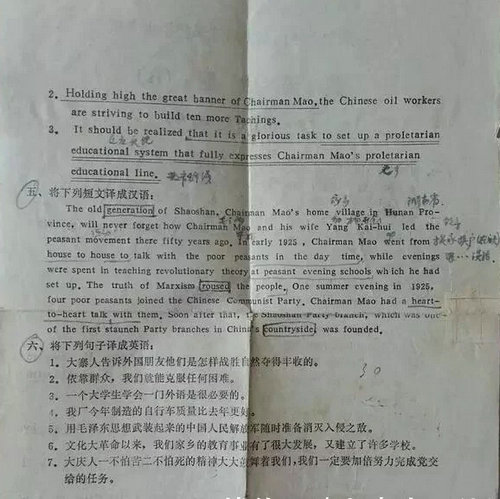 2. Holding high the great banner of Chairman Mao, the Chinese oil workers
are striving to build ten more Tachings.
3. It should be realized that it is a glorious task to set up a proletarian
educational system that fully expresses Chairman Mao's proletarian
educational line.
五、将下列短文译成汉语:
The old generation of Shaoshan, Chairman Mao's home village in Hunan Pro-
vince, will never forget how Chairman Mao and his wife Yang Kai-hui led the
peasant movement there fifty years ago. In early 1925, Chairman Mao went from
house to house to talk with the poor peasants in the day time, while evenings
were spent in teaching revolutionary theory at peasant evening schools which he had
set up. The truth of Marxism roused the people. One summer evening in 1925,
four poor peasants joined the Chinese Communist Party. Chairman Mao had a heart-
to-heart talk with them. Soon after that, the Shaoshan Party branch, which was one
of the first staunch Party branches in China's countryside was founded.
六、将下列句子译成英语:
1. 大寨人告诉外国朋友他们是怎样战胜自然夺得丰收的。
2. 依靠群众,我们就能克服任何困难。
3. 一个大学生学会一门外语是很必要的。
4. 我厂今年制造的自行车质量比去年更好。
5. 用毛泽东思想武装起来的中国人民解放军随时准备消灭入侵之敌。
6. 文化大革命以来,我们家乡的教育事业有了很大发展,又建立了许多学校。
7. 大庆人一不怕苦二不怕死的精神大大鼓舞着我们,我们一定要加倍努力完成党交
给的任务。
30